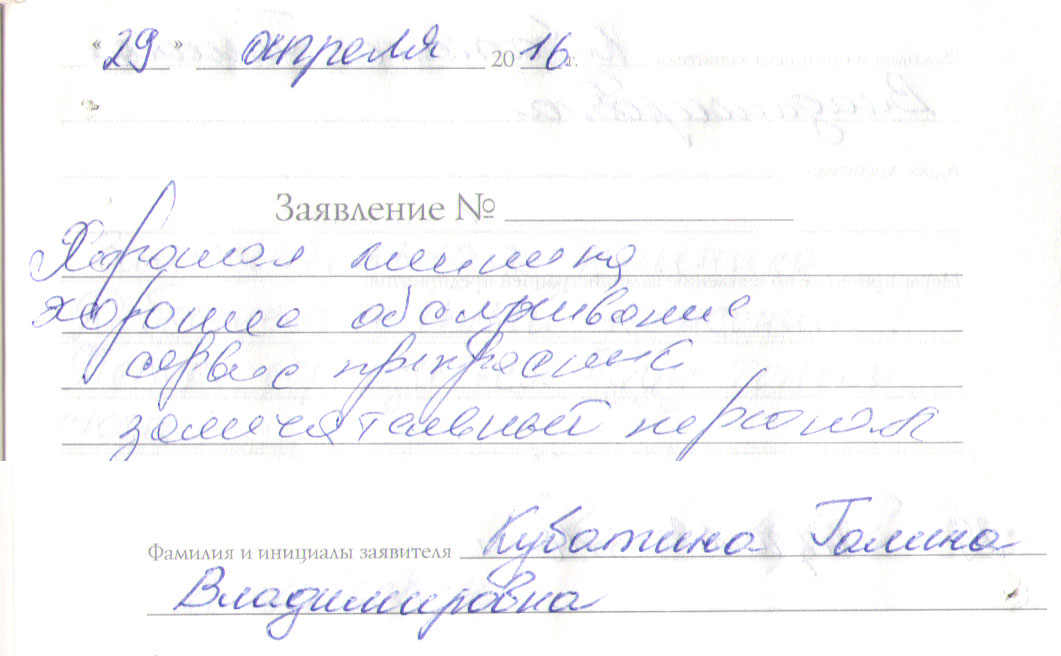 "29" апреля 2016 г.
Заявление №
Хорошая
хорошее обслуживание
сервис прекрасный
замечательный персонал
Фамилия и инициалы заявителя Кубатина Галина
Владимировна